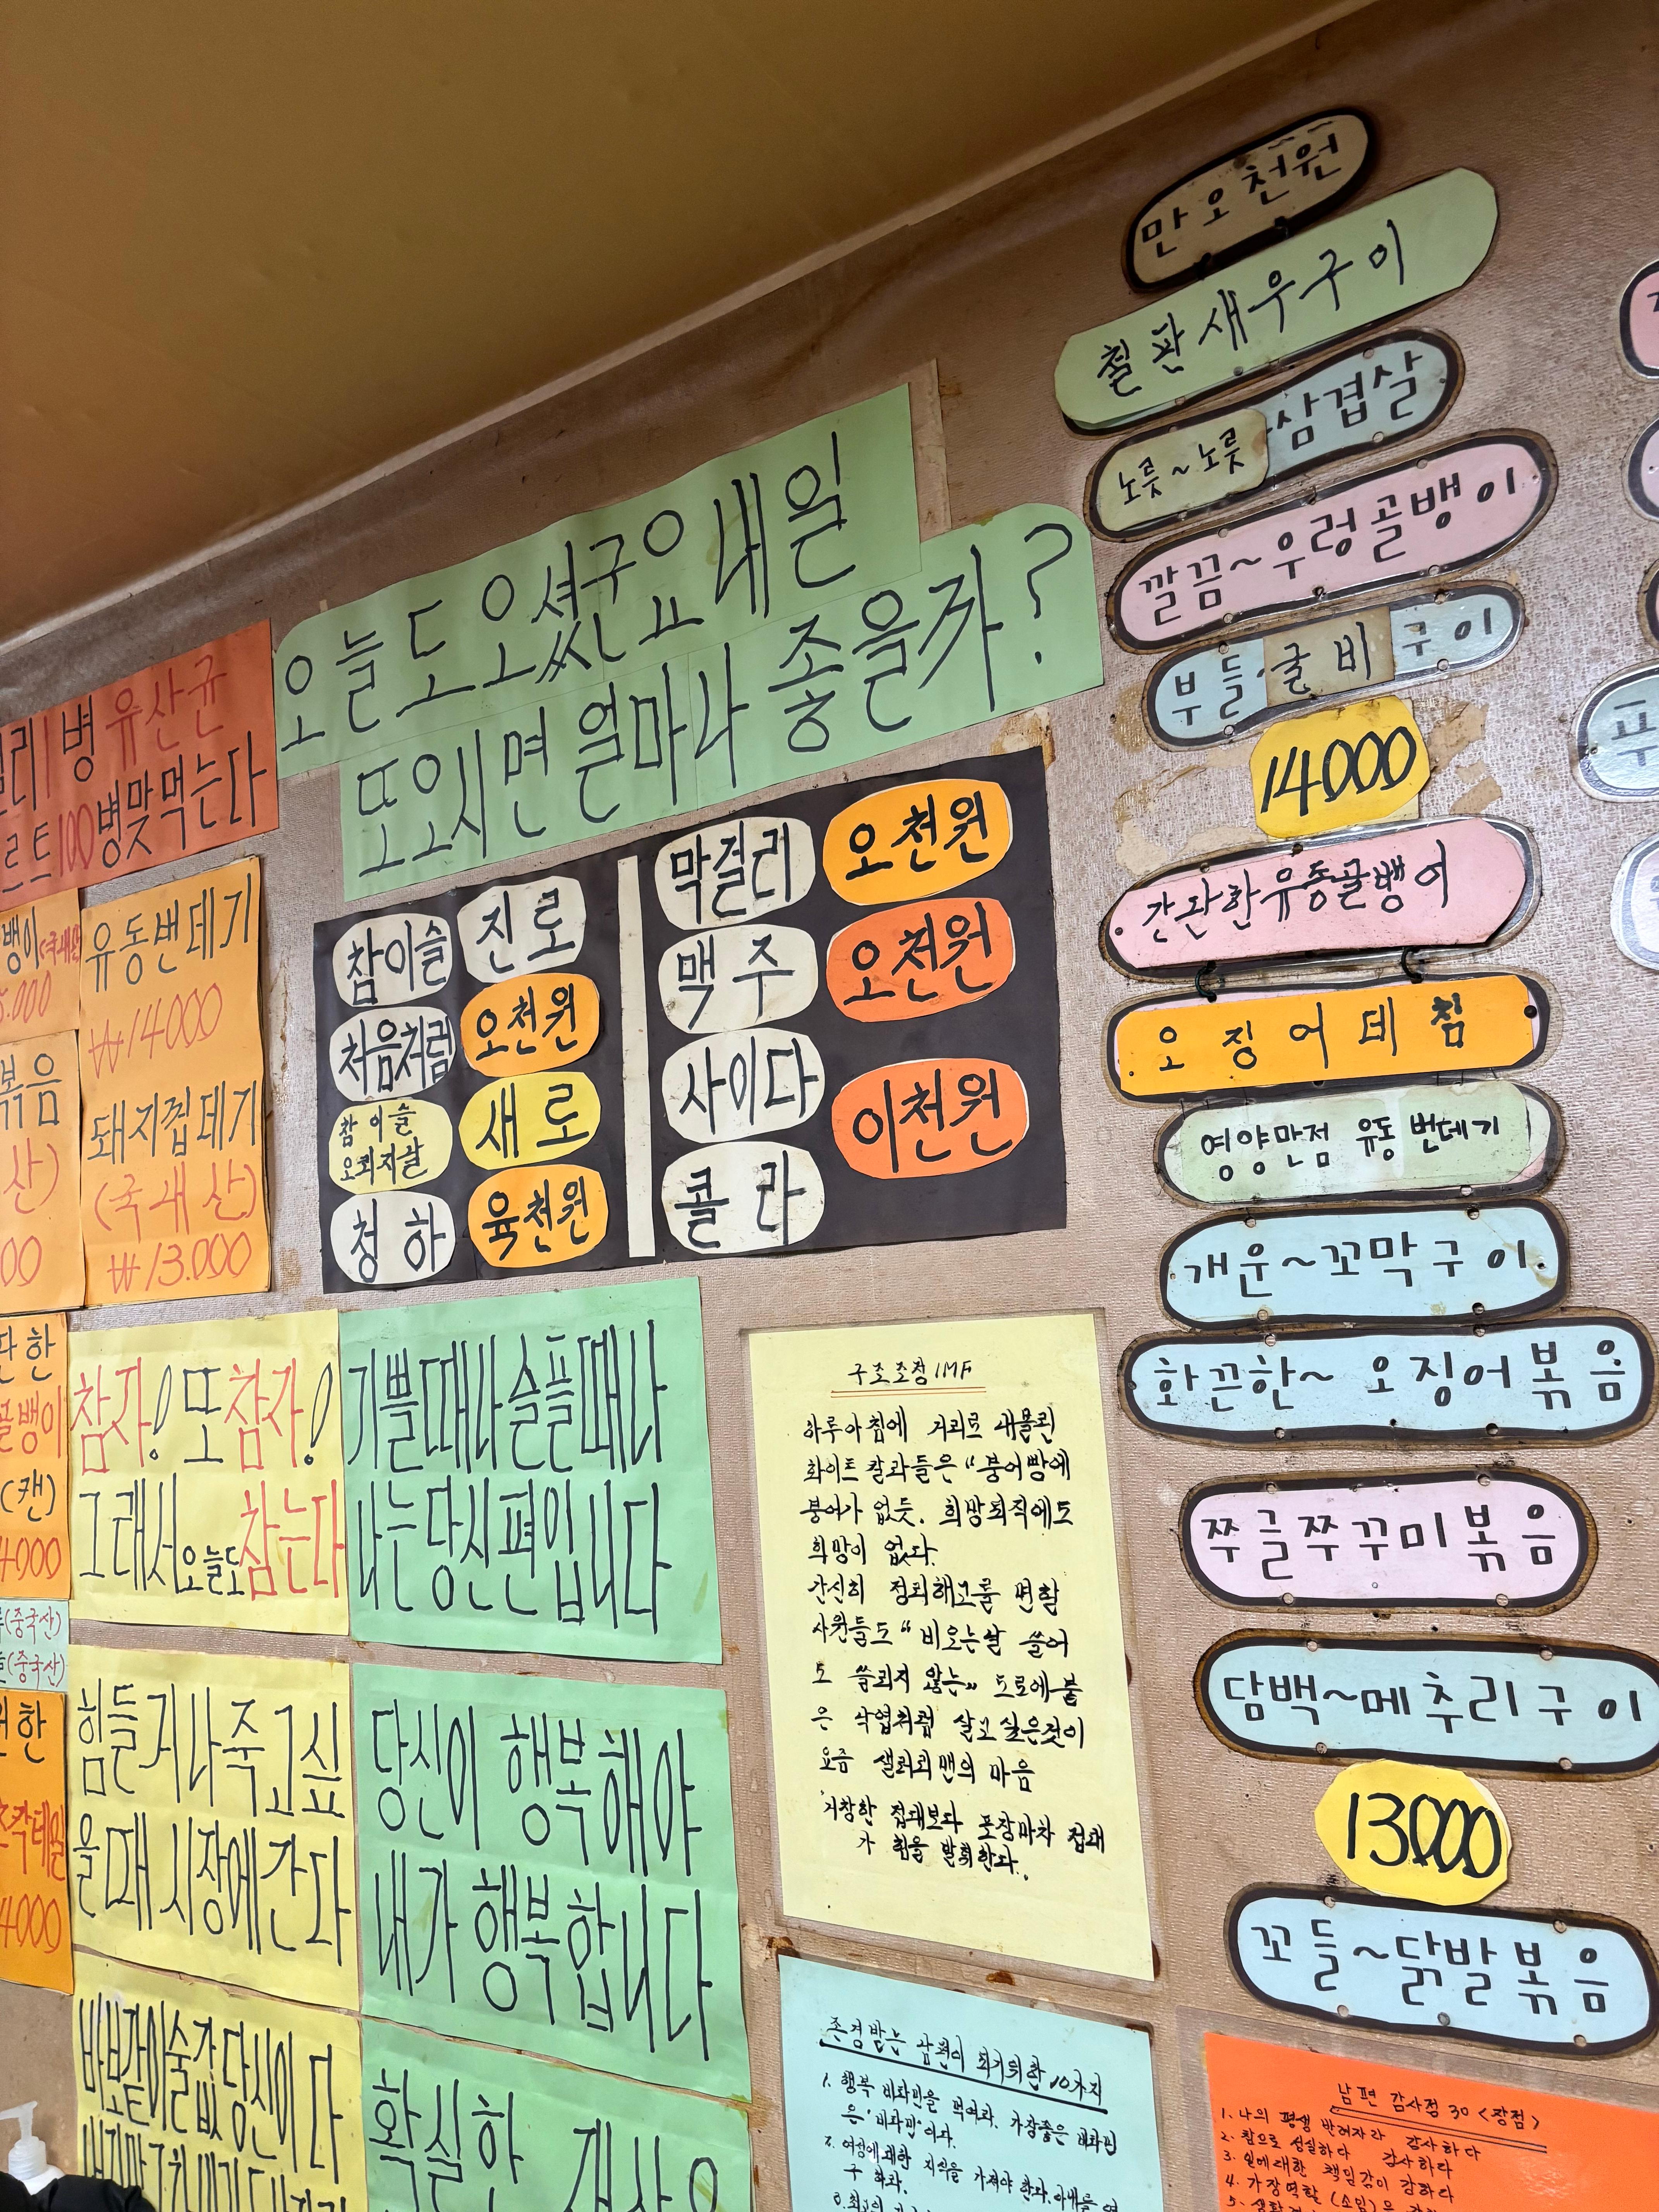 만오천원
철판새우구이
노릇~노릇 삼겹살
깔끔~우렁골뱅이
부들 굴비구이
14000
간단한유동골뱅이
오징어데침
영양만점 유동번데기
개운~꼬막구이
화끈한~오징어볶음
쭈글쭈꾸미볶음
담백~메추리구이
13000
꼬들~닭발볶음
오늘도오셨군요내일
또오시면얼마나좋을까?
리1병유산균
르트100병맞먹는다
참이슬
진로
처음처럼
오천원
참이슬
오리지날
새로
청하
육천원
막걸리
오천원
맥주
오천원
사이다
이천원
콜라
뱅이(국내산)
5.000
볶음
산)
00
유동번데기
₩14000
돼지껍데기
(국내산)
₩13.000
한
골뱅이
(캔)
4000
(중국산)
(중국산)
한
4000
참자! 또참자!
그래서오늘도참는다
기쁠때나슬플때나
나는당신편입니다
힘들거나죽고싶
을때시장에간다
당신이 행복해야
내가 행복합니다
바보같이술값당신이다
확실한
구조조정IMF
하루아침에 거리로 내몰린
화이트칼라들은 "붕어빵에
붕어가 없듯. 희망퇴직에도
희망이 없다.
간신히 정리해고를 면한
사원들도 "비오는날 쓸어
도 쓸리지 않는" 도로에붙
은 낙엽처럼 살고싶은것이
요즘 샐러리맨의 마음
거창한 접대보다 포장마차 접대
가 힘을 발휘한다.
존경받는 남편이 되기위한 10가지
1. 행복 비타민을 먹여라. 가장좋은 비타민
은 '비타민'이다.
2. 여성에대한 지식을 가져야 한다.
남편 감사점 30 <장점>
1. 나의 평생 반려자라 감사하다
2. 참으로 성실하다 감사하다
3. 일에대한 책임감이 강하다
4. 가장역할 (소임)